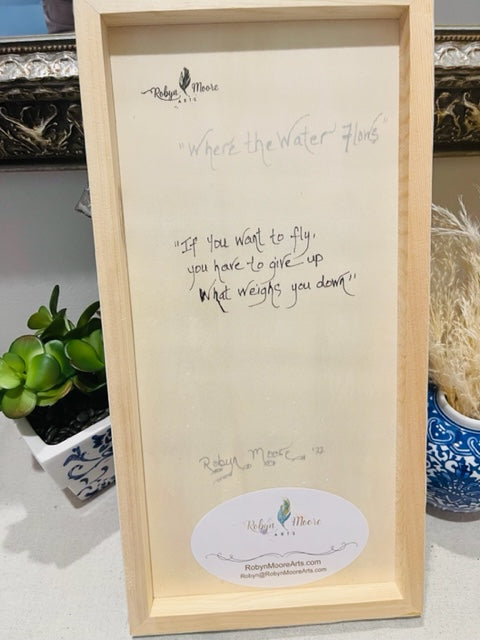 Robyn Moore
ARTS
"Where the Water Flows"
"If you want to fly,
you have to give up
What weighs you down"
Robyn Moore '22
Robyn Moore
ARTS
RobynMooreArts.com
Robyn@RobynMooreArts.com